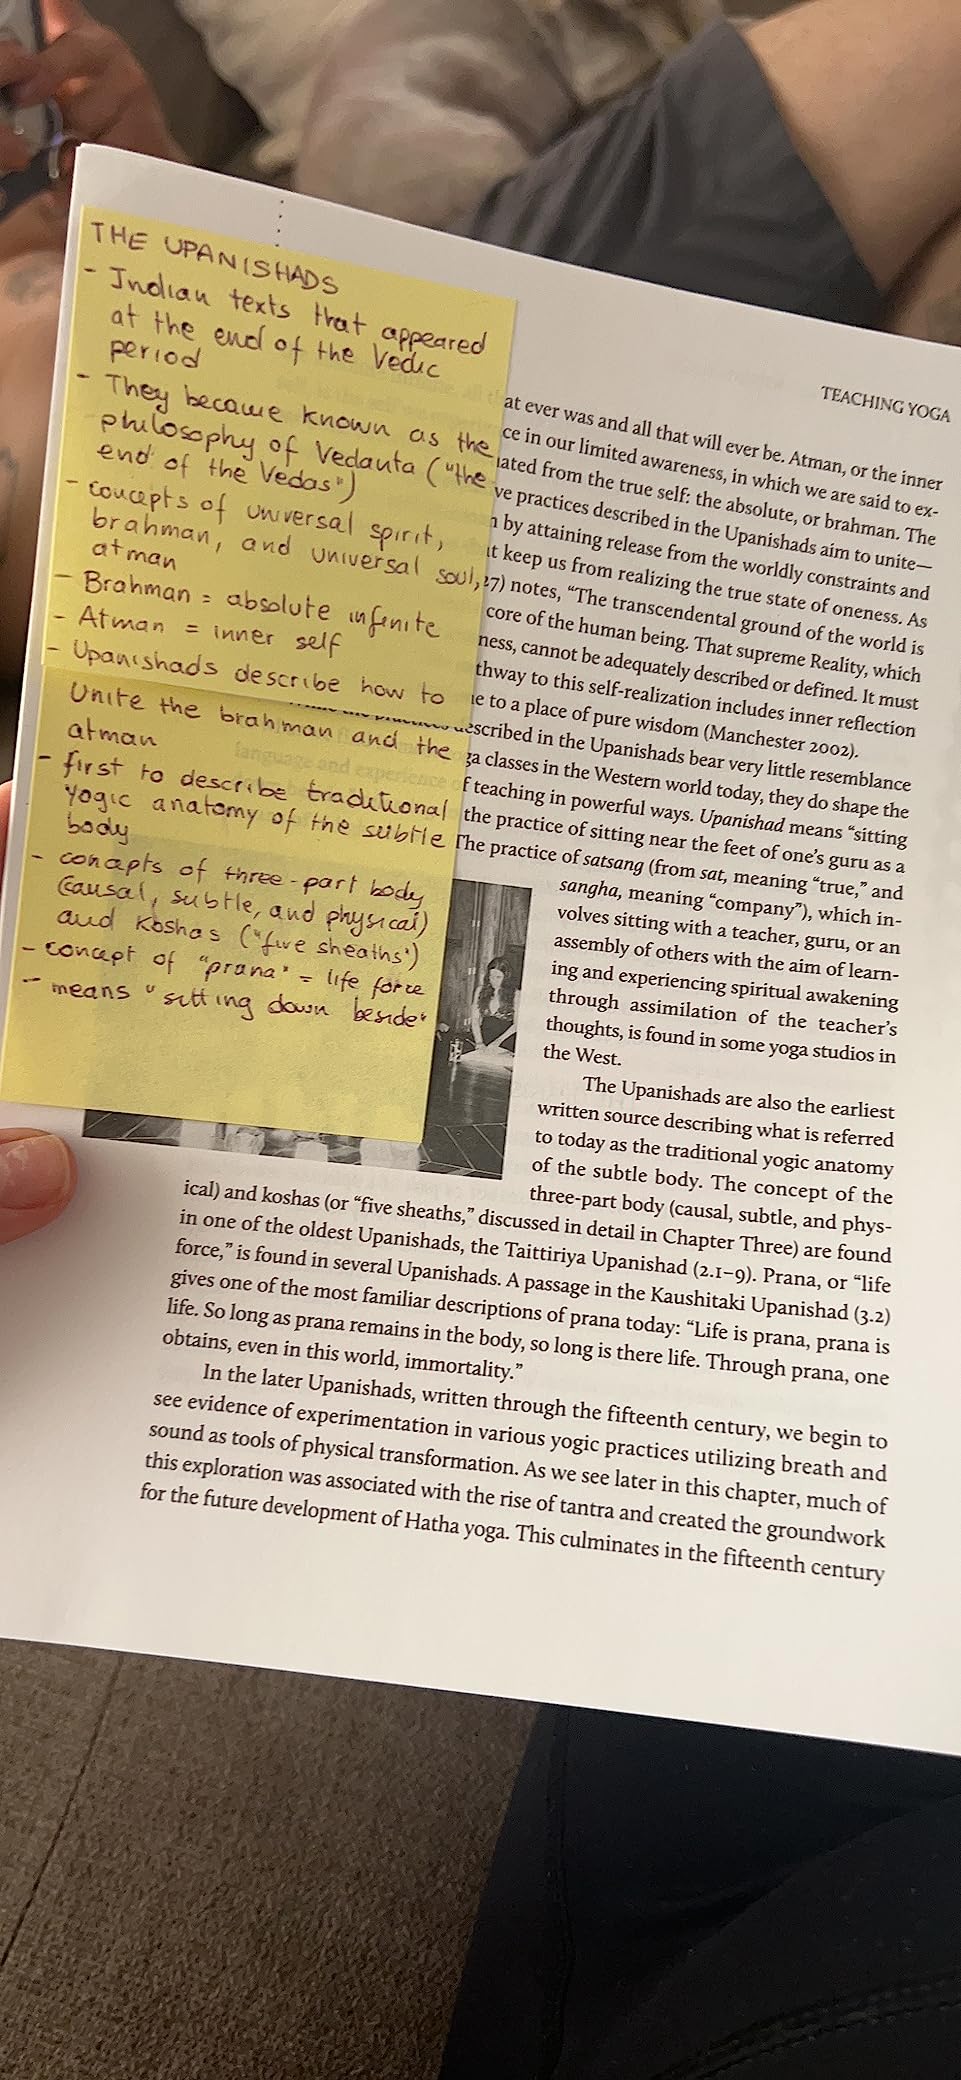 THE UPANISHADS
- Indian texts that appeared
at the end of the Vedic
period
- They became known as the
philosophy of Vedanta ("the
end of the Vedas")
- concepts of universal spirit,
brahman, and universal soul,
atman
- Brahman = absolute infinite
- Atman = inner self
- Upanishads describe how to
Unite the brahman and the
atman
- first to describe traditional
yogic anatomy of the subtle
body
- concepts of three-part body
(causal, subtle, and physical)
and koshas ("five sheaths")
- concept of "prana" = life force
- means "sitting down beside"
TEACHING YOGA
at ever was and all that will ever be. Atman, or the inner
ce in our limited awareness, in which we are said to ex-
ated from the true self: the absolute, or brahman. The
ve practices described in the Upanishads aim to unite—
by attaining release from the worldly constraints and
t keep us from realizing the true state of oneness. As
27) notes, "The transcendental ground of the world is
core of the human being. That supreme Reality, which
ness, cannot be adequately described or defined. It must
thway to this self-realization includes inner reflection
e to a place of pure wisdom (Manchester 2002).
described in the Upanishads bear very little resemblance
ga classes in the Western world today, they do shape the
f teaching in powerful ways. Upanishad means "sitting
the practice of sitting near the feet of one's guru as a
The practice of satsang (from sat, meaning "true," and
sangha, meaning "company"), which in-
volves sitting with a teacher, guru, or an
assembly of others with the aim of learn-
ing and experiencing spiritual awakening
through assimilation of the teacher's
thoughts, is found in some yoga studios in
the West.
The Upanishads are also the earliest
written source describing what is referred
to today as the traditional yogic anatomy
of the subtle body. The concept of the
three-part body (causal, subtle, and phys-
ical) and koshas (or "five sheaths," discussed in detail in Chapter Three) are found
in one of the oldest Upanishads, the Taittiriya Upanishad (2.1–9). Prana, or "life
force," is found in several Upanishads. A passage in the Kaushitaki Upanishad (3.2)
gives one of the most familiar descriptions of prana today: "Life is prana, prana is
life. So long as prana remains in the body, so long is there life. Through prana, one
obtains, even in this world, immortality."
In the later Upanishads, written through the fifteenth century, we begin to
see evidence of experimentation in various yogic practices utilizing breath and
sound as tools of physical transformation. As we see later in this chapter, much of
this exploration was associated with the rise of tantra and created the groundwork
for the future development of Hatha yoga. This culminates in the fifteenth century